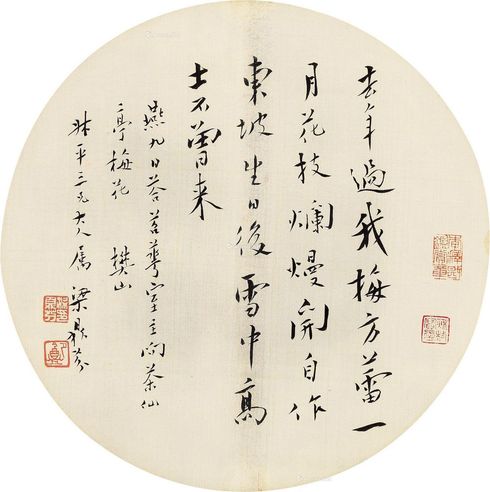 去年過我梅方蕾一
月花枝爛熳開自作
東坡生日後雪中高
士不曾来
燕九日答苕華室主向茶仙
亭梅花 樊山
叔平三兄大人属 梁鼎芬